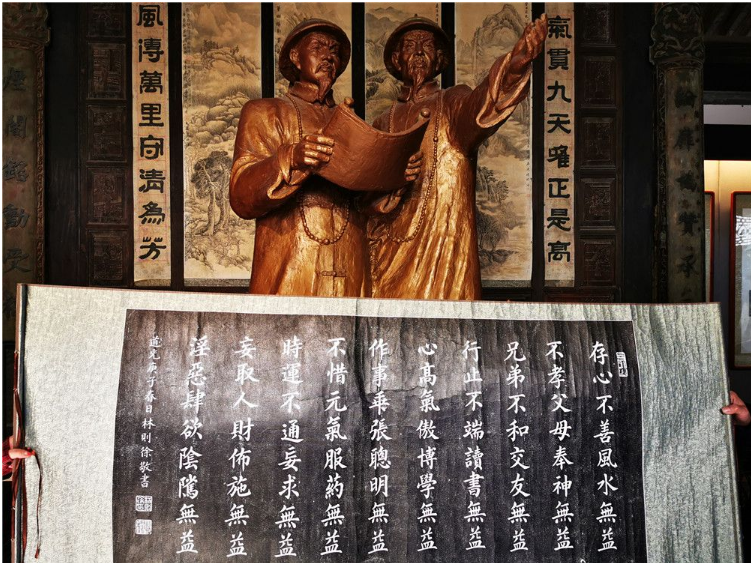 氣貫九天唯正是高
風傳萬里守清為芳
存心不善風水無益
不孝父母奉神無益
兄弟不和交友無益
行止不端讀書無益
心髙氣傲博學無益
作事乖張聰明無益
不惜元氣服葯無益
時運不通妄求無益
妄取人財佈施無益
淫惡肆欲陰隲無益
道光庚子春日林則徐敬書